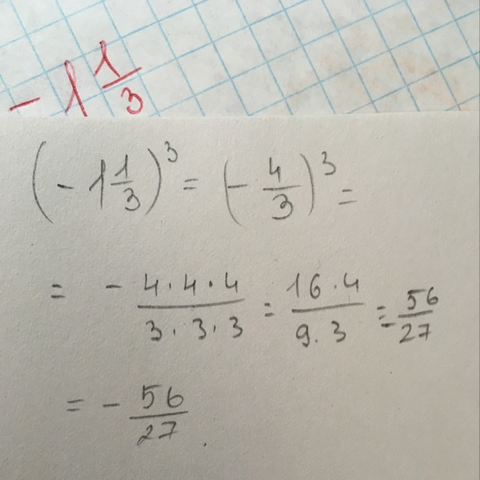 - 1 1/3
(- 1 1/3)³ = (- 4/3)³ =
= - 4·4·4/3·3·3 = 16·4/9·3 = - 56/27
= - 56/27.